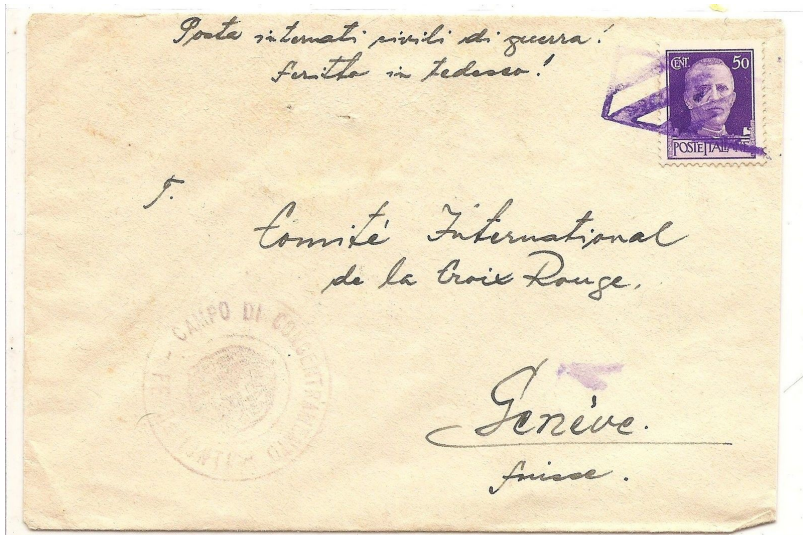 Posta internati civili di guerra!
scritta in tedesco!
CENT. 50
POSTE ITALIANE
T.
Comité International
de la Croix Rouge.
CAMPO DI CONCENTRAMENTO
Genève.
Suisse.